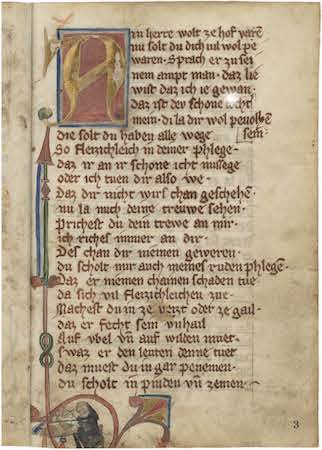 Ain herre wolt ze hof varē
nu solt du dich vil wol pe
waren· Sprach er zu sei
nem ampt man· daz lie
wist daz ich ie gewan
daz ist der schone
mein· di la dir wol pevolhē
sein·
die solt du haben alle wege
So fleizichleich in deiner phlege·
daz ir an ir schone icht missege
oder ich tuen dir also we·
Daz dir nicht wirs chan geschehē·
nu la mich deine treuwe sehen·
Prichest du dein trewe an mir·
ich riches immer an dir·
Des chan dir niemen geweren·
du scholt mir auch meines ruden phlegē·
Daz er niemen chainen schaden tue
da sich vil fleizzichleichen zue
Machest du in ze verzt oder ze gail·
daz er secht sein unhail
Auf vbel vn̄ auf wilden muet·
swaz er den leuten denne tuet
daz muest du in gar penemen·
du scholt in pinden vn̄ zemen·
3